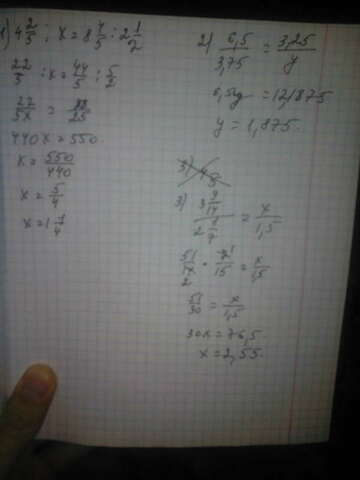 1) 4 2/5 : x = 8 4/5 : 2 1/2
22/5 : x = 44/5 : 5/2
22/5x = 88/25
440x = 550
x = 550/440
x = 5/4
x = 1 1/4
2) 6,5/3,75 = 3,25/y
6,5y = 12,1875
y = 1,875.
3) 3 9/14 / 2 1/7 = x/1,5
51/14 · 7/15 = x/1,5
51/30 = x/1,5
30x = 76,5
x = 2,55.